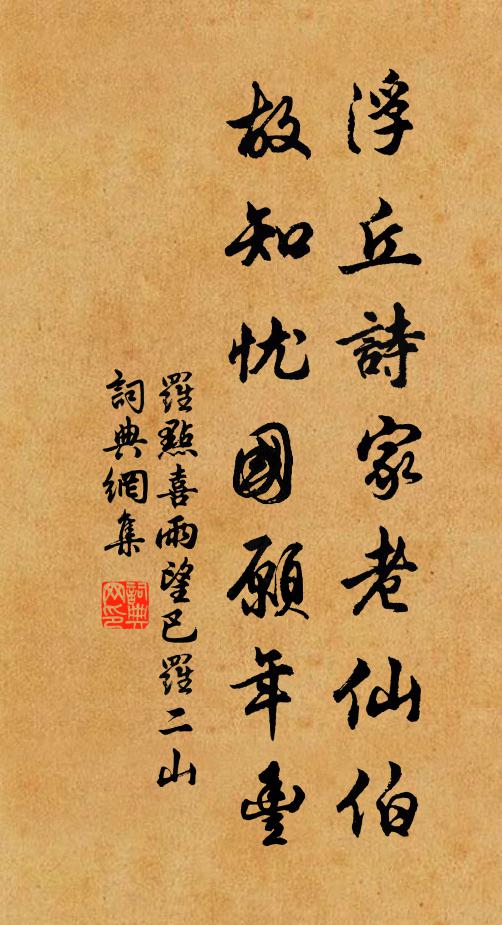 浮丘詩家老仙伯
故知忧國願年豐
羅點喜雨望巴羅二山
詞典網集
詞典网印